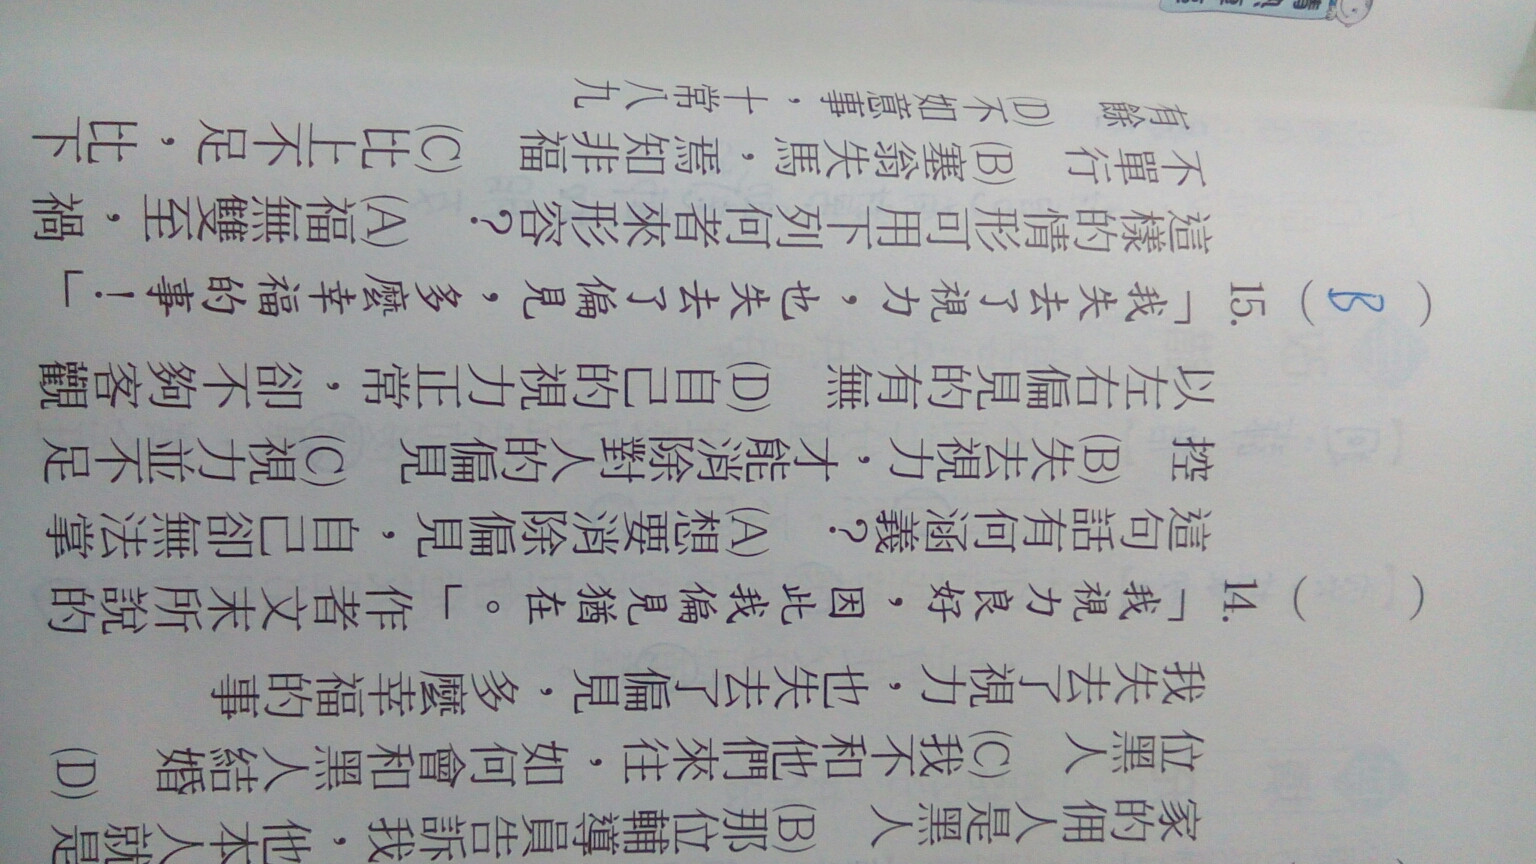 家的佣人是黑人　(B)那位輔導員告訴我，他本人就是
位黑人　(C)我不和他們來往，如何會和黑人結婚　(D)
我失去了視力，也失去了偏見，多麼幸福的事
（　）14.「我視力良好，因此我偏見猶在。」作者文末所說的
這句話有何涵義？　(A)想要消除偏見，自己卻無法掌
控　(B)失去視力，才能消除對人的偏見　(C)視力並不足
以左右偏見的有無　(D)自己的視力正常，卻不夠客觀
（B）15.「我失去了視力，也失去了偏見，多麼幸福的事！」
這樣的情形可用下列何者來形容？　(A)福無雙至，禍
不單行　(B)塞翁失馬，焉知非福　(C)比上不足，比下
有餘　(D)不如意事，十常八九